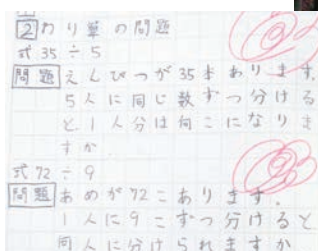 2 わり算の問題
式 35÷5
問題 えんぴつが35本あります。
5人に同じ数ずつ分ける
と、1人分は何こになりま
すか
式 72÷9
問題 あめが72こあります。
1人に9こずつ分けると
何人に分けられますか